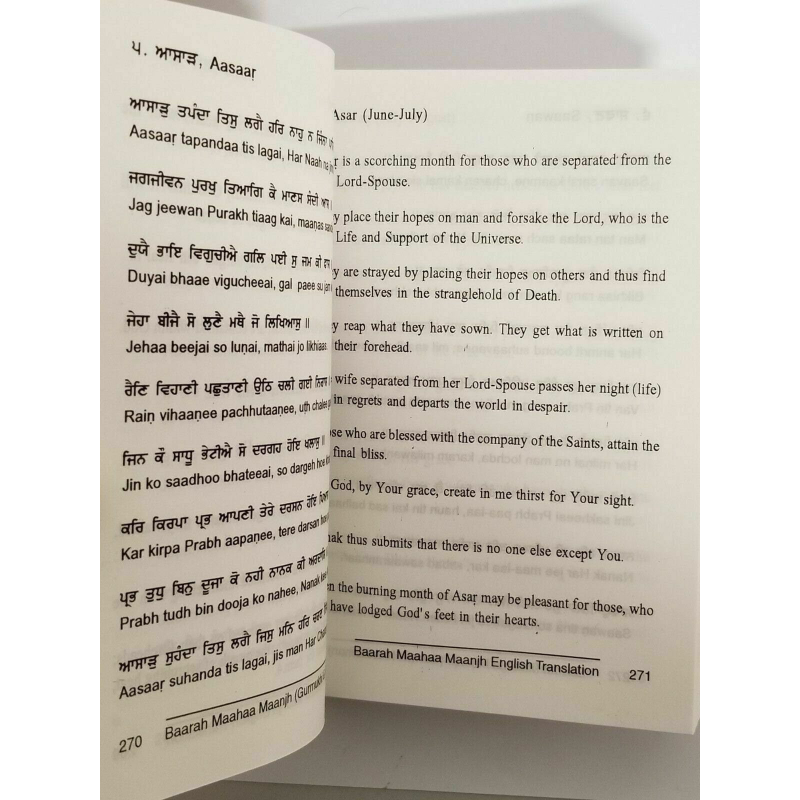 ੫. ਆਸਾੜ, Aasaaṛ
ਆਸਾੜੁ ਤਪੰਦਾ ਤਿਸੁ ਲਗੈ ਹਰਿ ਨਾਹੁ ਨ ਜਿੰਨਾ
Aasaaṛ tapandaa tis lagai, Har Naah na
ਜਗਜੀਵਨ ਪੁਰਖੁ ਤਿਆਗਿ ਕੈ ਮਾਣਸ ਸੰਦੀ ਆਸ
Jag jeewan Purakh tiaag kai, maaṇas
ਦੁਯੈ ਭਾਇ ਵਿਗੁਚੀਐ ਗਲਿ ਪਈ ਸੁ ਜਮ ਕੀ ਫਾਸ
Duyai bhaae vigucheeai, gal paee su
ਜੇਹਾ ਬੀਜੈ ਸੋ ਲੁਣੈ ਮਥੈ ਜੋ ਲਿਖਿਆਸੁ ॥
Jehaa beejai so luṇai, mathai jo likhiaas.
ਰੈਣਿ ਵਿਹਾਣੀ ਪਛੁਤਾਣੀ ਉਠਿ ਚਲੀ ਗਈ ਨਿਰਾਸ
Raiṇ vihaaṇee pachhutaaṇee, uṭh chalee
ਜਿਨ ਕੌ ਸਾਧੂ ਭੇਟੀਐ ਸੋ ਦਰਗਹ ਹੋਇ ਖਲਾਸੁ ॥
Jin ko saadhoo bhateeai, so dargeh hoe
ਕਰਿ ਕਿਰਪਾ ਪ੍ਰਭ ਆਪਣੀ ਤੇਰੇ ਦਰਸਨ ਹੋਇ
Kar kirpa Prabh aapaṇee, tere darsan
ਪ੍ਰਭ ਤੁਧੁ ਬਿਨੁ ਦੂਜਾ ਕੋ ਨਹੀ ਨਾਨਕ ਕੀ
Prabh tudh bin dooja ko nahee, Nanak
ਆਸਾੜੁ ਸੁਹੰਦਾ ਤਿਸੁ ਲਗੈ ਜਿਸੁ ਮਨਿ ਹਰਿ ਚਰਣ
Aasaaṛ suhanda tis lagai, jis man Har
270 Baarah Maahaa Maanjh (Gurmukhi
Asar (June-July)
r is a scorching month for those who are separated from the
Lord-Spouse.
y place their hopes on man and forsake the Lord, who is the
Life and Support of the Universe.
y are strayed by placing their hopes on others and thus find
themselves in the stranglehold of Death.
y reap what they have sown. They get what is written on
their forehead.
wife separated from her Lord-Spouse passes her night (life)
in regrets and departs the world in despair.
se who are blessed with the company of the Saints, attain the
final bliss.
God, by Your grace, create in me thirst for Your sight.
ak thus submits that there is no one else except You.
n the burning month of Asaṛ may be pleasant for those, who
have lodged God's feet in their hearts.
Baarah Maahaa Maanjh English Translation 271